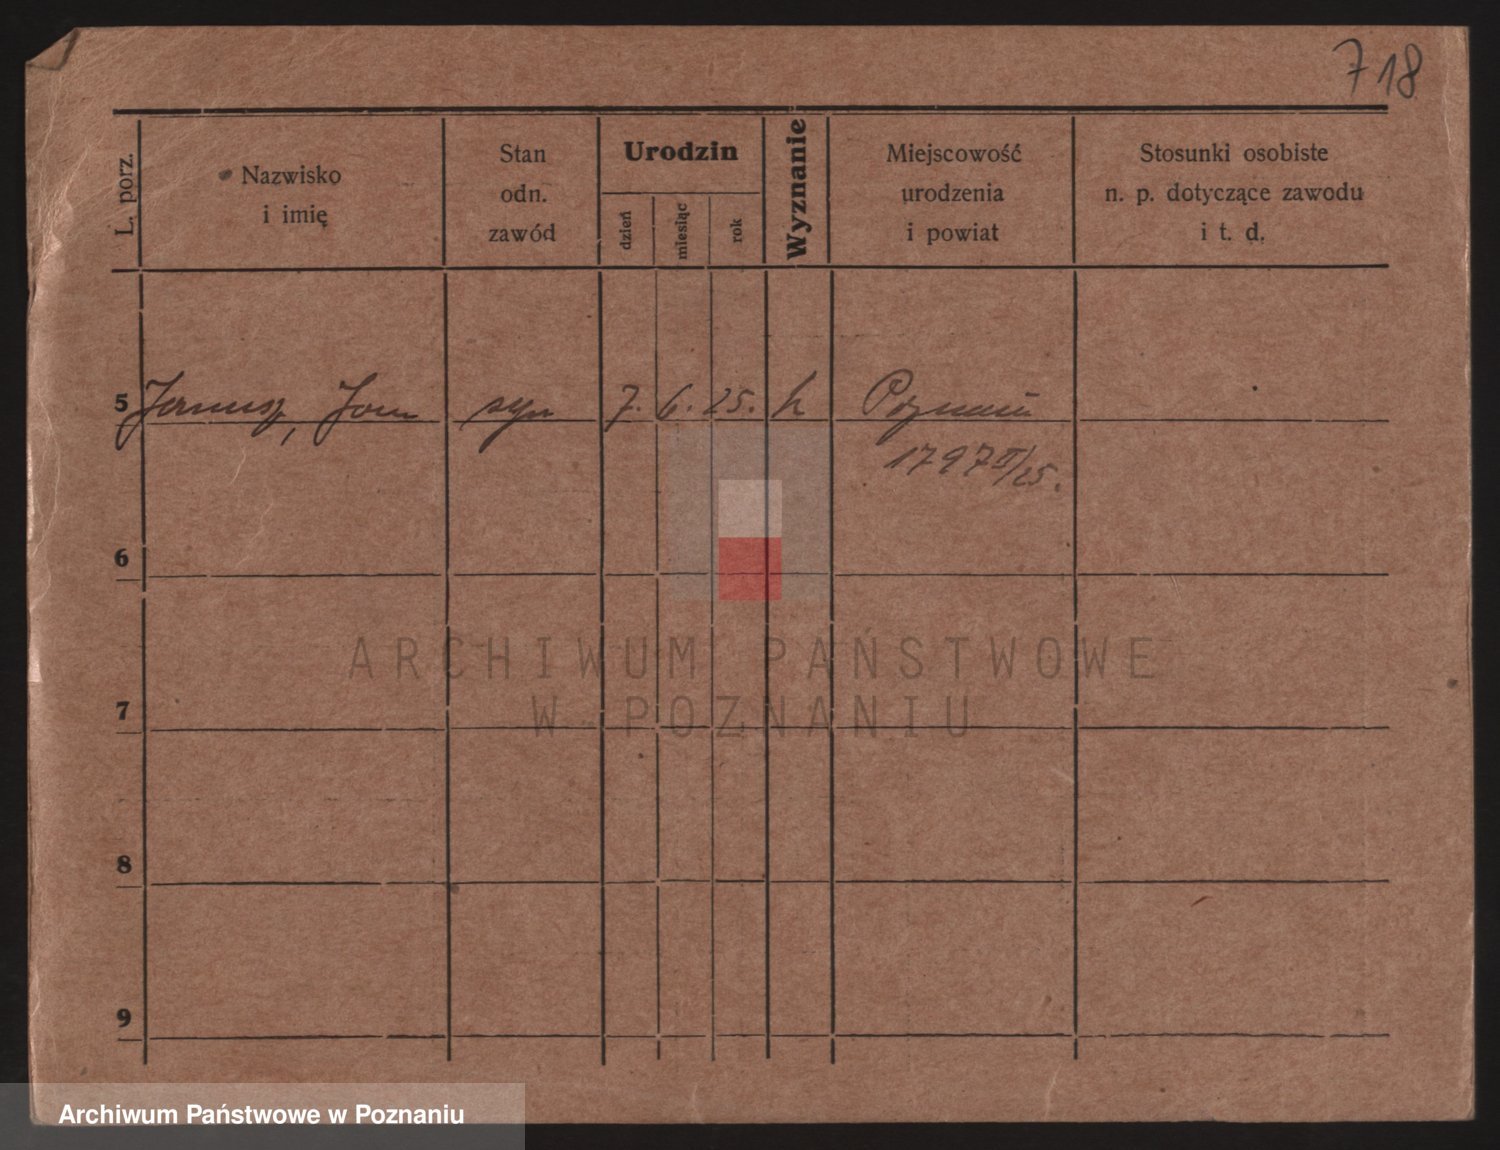 718
L. porz.
Nazwisko
i imię
Stan
odn.
zawód
Urodzin
dzień
miesiąc
rok
Wyznanie
Miejscowość
urodzenia
i powiat
Stosunki osobiste
n. p. dotyczące zawodu
i t. d.
5 Janusz, Jan syn 7. 6. 25. k Poznań
1797 II/25.
6
7
8
9
ARCHIWUM PAŃSTWOWE
W POZNANIU
Archiwum Państwowe w Poznaniu